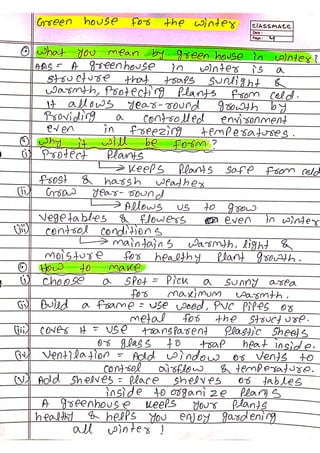 Green house for the winter
CLASSMATE
Date :
Page : 4
What you mean by greenhouse in winter?
Ans = A greenhouse in winter is a
structure that traps sunlight &
warmth, Protecting Plants from cold.
It allows year-round growth by
Providing a controlled environment
even in freezing temperatures.
Why it will be form?
(i) Protect Plants
→ Keeps Plants safe from cold
frost & harsh weather
(ii) Grow year-round
→ Allows us to grow
vegetables & flowers even in winter
(iii) control conditions
→ maintains warmth, light &
moisture for healthy Plant growth.
How to make
(i) Choose a spot = Pick a sunny area
for maximum warmth.
(ii) Build a frame = use wood, PVC pipes or
metal for the structure.
(iii) cover it = use transparent Plastic sheets
or glass to trap heat inside.
(iv) Ventilation = Add window or vents to
control airflow & temperature.
(v) Add shelves = place shelves or tables
inside to organize Plants
A greenhouse keeps your Plants
healthy & helps you enjoy gardening
all winter!